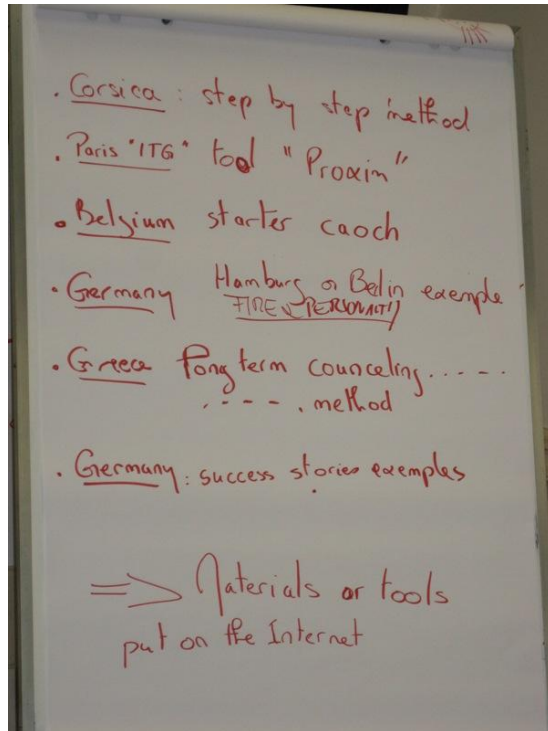 . Corsica : step by step method
. Paris "ITG" tool "Proxim"
. Belgium starter caoch
. Germany Hamburg or Berlin exemple
PERSONALITY
. Greeca long term counceling.....
..... method
. Germany : success stories exemples
=> Materials or tools
put on the Internet